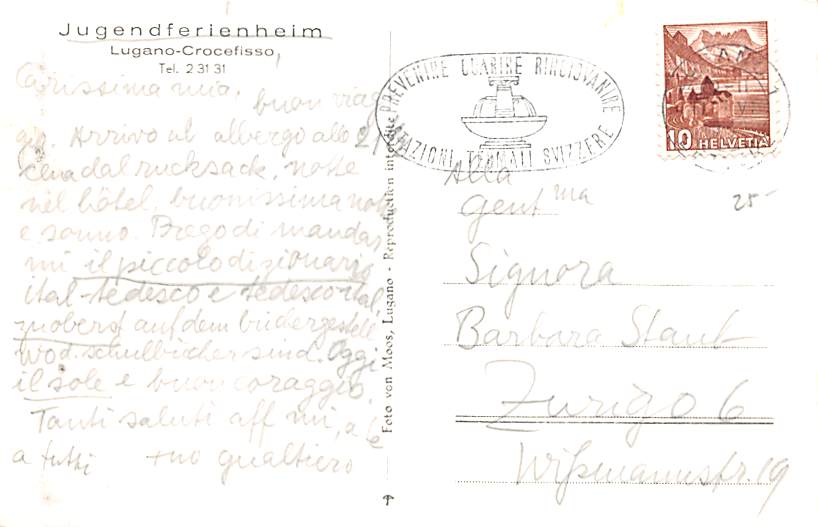 Jugendferienheim
Lugano-Crocefisso
Tel. 2 31 31
Carissima mia, buon viag-
gio. Arrivo al albergo alle 21,
cena dal rucksack, notte
nel hôtel, buonissima notte
e sonno. Prego di mandar
mi il piccolo dizionario
ital-tedesco e tedesco ital.
zuoberst auf dem büchergestell
wo d. schulbücher sind. Oggi
il sole e buon coraggio.
Tanti saluti aff mi, a te
a tutti tuo gualtiero
Foto von Moos, Lugano - Reproduction interdite
PREVENIRE GUARIRE RINGIOVANIRE
STAZIONI TERMALI SVIZZERE
10 HELVETIA
25-
Alla
Gent ma
Signora
Barbara Staub
Zurigo 6
Wißmannstr. 19